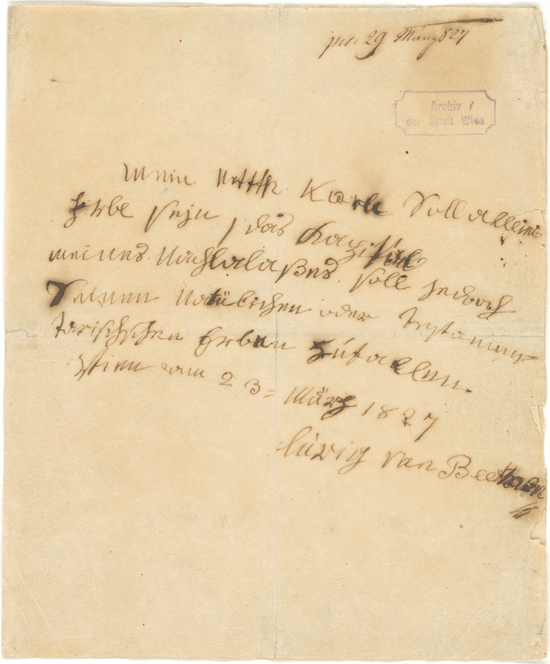 pr. 29 März 827
Archiv
der Stadt Wien
Mein Neffe Karl Soll allein
Erbe seyn, das Kapital
meines Nachlalaßes soll jedoch
Seinen natülichen oder testamen-
tarischschen Erben zufallen.
Wien am 23= März 1827
luwig van Beethoven